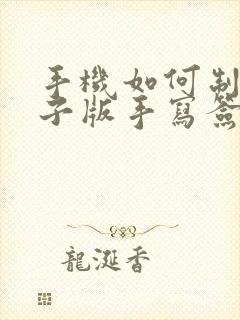 手機如何制
子版手寫簽
龍涎香